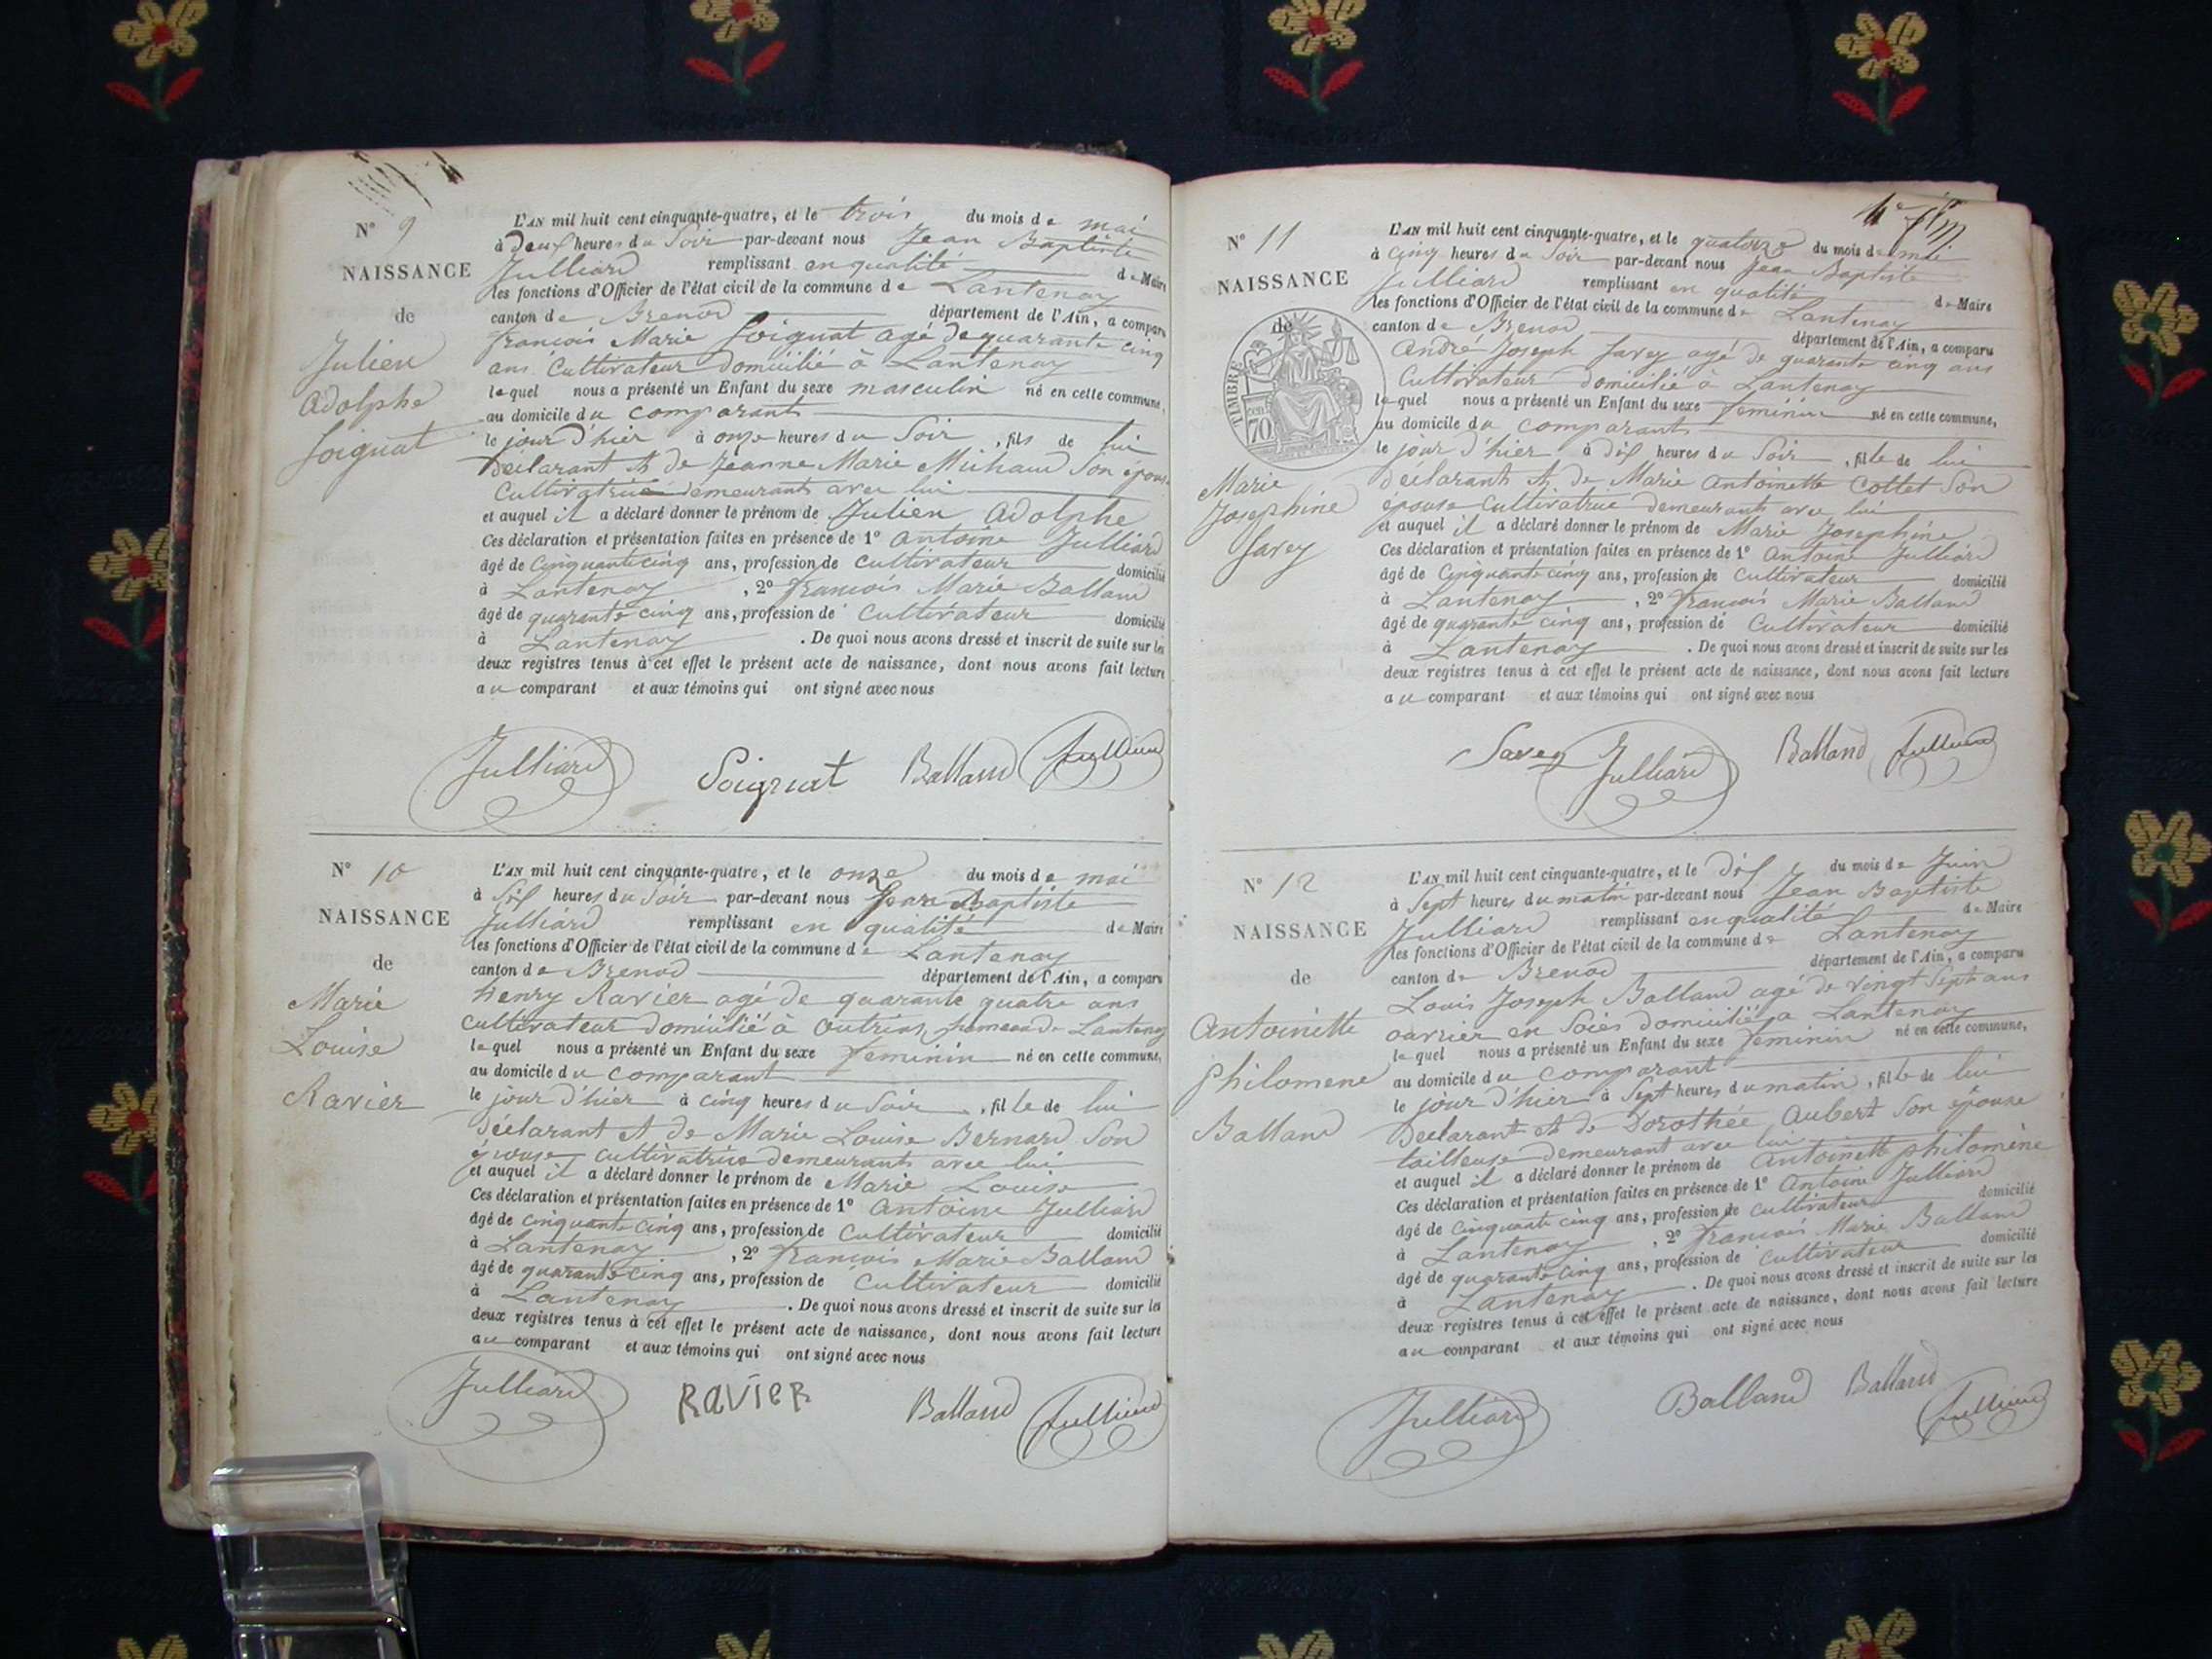 N° 9
NAISSANCE
de
Julien
Adolphe
Soignat
L'AN mil huit cent cinquante-quatre, et le trois du mois de mai
à Deux heures du Soir par-devant nous Jean Baptiste
Julliard remplissant en qualité de Maire
les fonctions d'Officier de l'état civil de la commune de Lantenay
canton de Brenod département de l'Ain, a comparu
françois Marie Soignat agé de quarante cinq
ans Cultivateur domicilié à Lantenay
lequel nous a présenté un Enfant du sexe masculin né en cette commune,
au domicile du comparant
le jour d'hier à onze heures du Soir, fils de lui
Déclarant et de Jeanne Marie Michaud Son épouse
Cultivatrice demeurant avec lui
et auquel il a déclaré donner le prénom de Julien Adolphe
Ces déclaration et présentation faites en présence de 1° Antoine Julliard
âgé de Cinquante cinq ans, profession de Cultivateur domicilié
à Lantenay, 2° françois Marie Balland
âgé de quarante cinq ans, profession de Cultivateur domicilié
à Lantenay. De quoi nous avons dressé et inscrit de suite sur les
deux registres tenus à cet effet le présent acte de naissance, dont nous avons fait lecture
au comparant et aux témoins qui ont signé avec nous
Julliard Soignat Balland Julliard
N° 10
NAISSANCE
de
Marie
Louise
Ravier
L'AN mil huit cent cinquante-quatre, et le onze du mois de mai
à Six heures du Soir par-devant nous Jean Baptiste
Julliard remplissant en qualité de Maire
les fonctions d'Officier de l'état civil de la commune de Lantenay
canton de Brenod département de l'Ain, a comparu
henry Ravier agé de quarante quatre ans
Cultivateur domicilié à Outriaz, hameau de Lantenay
lequel nous a présenté un Enfant du sexe feminin né en cette commune,
au domicile du comparant
le jour d'hier à cinq heures du Soir, fille de lui
Déclarant et de Marie Louise Bernard Son
épouse cultivatrice demeurant avec lui
et auquel il a déclaré donner le prénom de Marie Louise
Ces déclaration et présentation faites en présence de 1° Antoine Julliard
âgé de cinquante cinq ans, profession de Cultivateur domicilié
à Lantenay, 2° françois Marie Balland
âgé de quarante cinq ans, profession de Cultivateur domicilié
à Lantenay. De quoi nous avons dressé et inscrit de suite sur les
deux registres tenus à cet effet le présent acte de naissance, dont nous avons fait lecture
au comparant et aux témoins qui ont signé avec nous
Julliard RAVIER Balland Julliard
N° 11
NAISSANCE
de
TIMBRE
70
Marie
Josephine
Savey
L'AN mil huit cent cinquante-quatre, et le quatorze du mois de mai
à Cinq heures du Soir par-devant nous Jean Baptiste
Julliard remplissant en qualité de Maire
les fonctions d'Officier de l'état civil de la commune de Lantenay
canton de Brenod département de l'Ain, a comparu
André Joseph Savey agé de quarante cinq ans
Cultivateur domicilié à Lantenay
lequel nous a présenté un Enfant du sexe feminin né en cette commune,
au domicile du comparant
le jour d'hier à dix heures du Soir, fille de lui
déclarant et de Marie Antoinette Cottet Son
épouse Cultivatrice demeurant avec lui
et auquel il a déclaré donner le prénom de Marie Josephine
Ces déclaration et présentation faites en présence de 1° Antoine Julliard
âgé de Cinquante cinq ans, profession de Cultivateur domicilié
à Lantenay, 2° françois Marie Balland
âgé de quarante cinq ans, profession de Cultivateur domicilié
à Lantenay. De quoi nous avons dressé et inscrit de suite sur les
deux registres tenus à cet effet le présent acte de naissance, dont nous avons fait lecture
au comparant et aux témoins qui ont signé avec nous
Savey Julliard Balland Julliard
N° 12
NAISSANCE
de
Antoinette
philomene
Balland
L'AN mil huit cent cinquante-quatre, et le dix du mois de Juin
à Sept heures du matin par-devant nous Jean Baptiste
Julliard remplissant en qualité de Maire
les fonctions d'Officier de l'état civil de la commune de Lantenay
canton de Brenod département de l'Ain, a comparu
Louis Joseph Balland agé de vingt Sept ans
ouvrier en Soies domicilié à Lantenay
lequel nous a présenté un Enfant du sexe feminin né en cette commune,
au domicile du comparant
le jour d'hier à Sept heures du matin, fille de lui
Déclarant et de Dorothée Aubert Son épouse
tailleuse demeurant avec lui
et auquel il a déclaré donner le prénom de Antoinette philomène
Ces déclaration et présentation faites en présence de 1° Antoine Julliard
âgé de Cinquante cinq ans, profession de Cultivateur domicilié
à Lantenay, 2° françois Marie Balland
âgé de quarante cinq ans, profession de Cultivateur domicilié
à Lantenay. De quoi nous avons dressé et inscrit de suite sur les
deux registres tenus à cet effet le présent acte de naissance, dont nous avons fait lecture
au comparant et aux témoins qui ont signé avec nous
Julliard Balland Balland Julliard